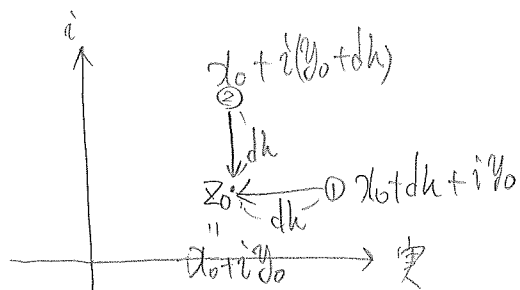 i
x₀+i(y₀+dh)
②
dh
z₀
① x₀+dh+iy₀
dh
〃
x₀+iy₀
実